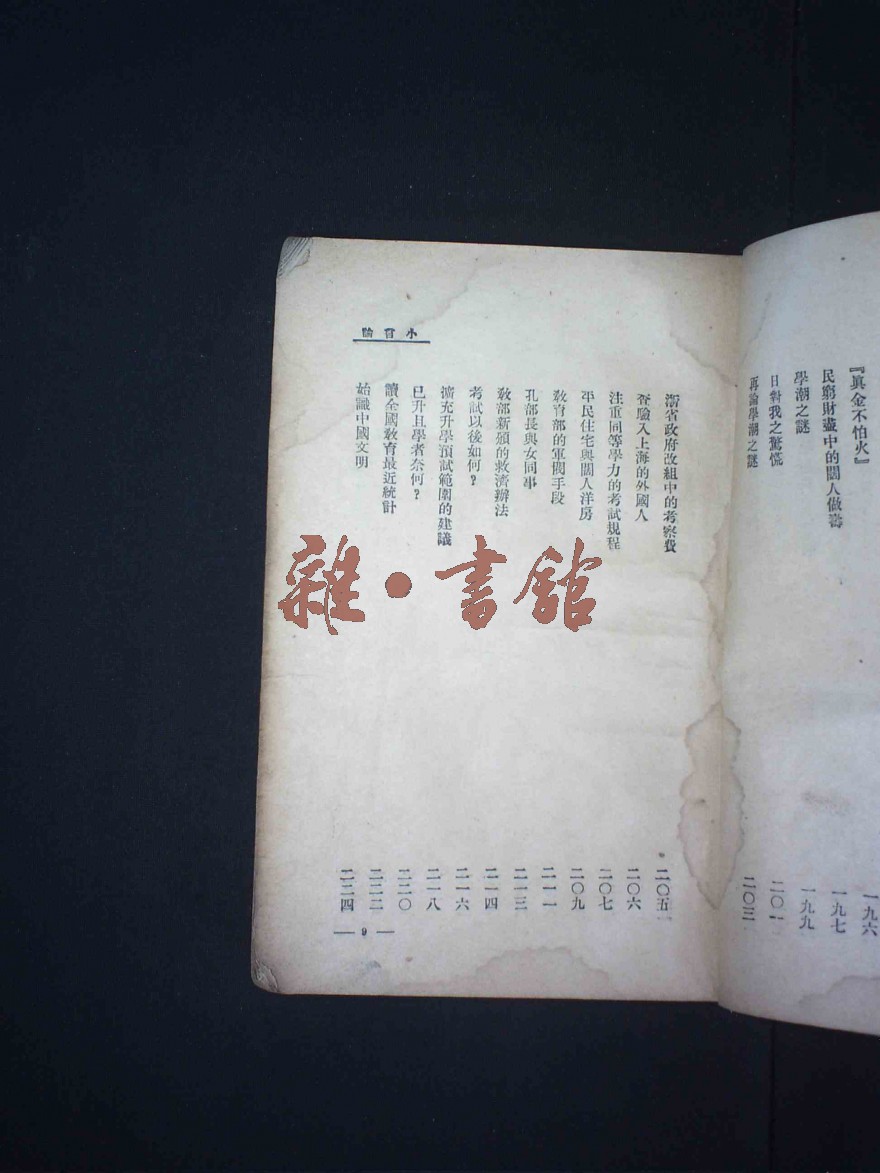 『眞金不怕火』
一九六
民窮財盡中的闊人做壽
一九七
學潮之謎
一九九
日對我之驚慌
二〇一
再論學潮之謎
二〇三
小言論
浙省政府改組中的考察費
二〇五
查驗入上海的外國人
二〇六
注重同等學力的考試規程
二〇七
平民住宅與闊人洋房
二〇九
敎育部的軍閥手段
二一一
孔部長與女同事
二一三
敎部新頒的救濟辦法
二一四
考試以後如何?
二一六
擴充升學預試範圍的建議
二一八
已升且學者奈何?
二二〇
讀全國敎育最近統計
二二二
始識中國文明
二二四
— 9 —
雜·書館